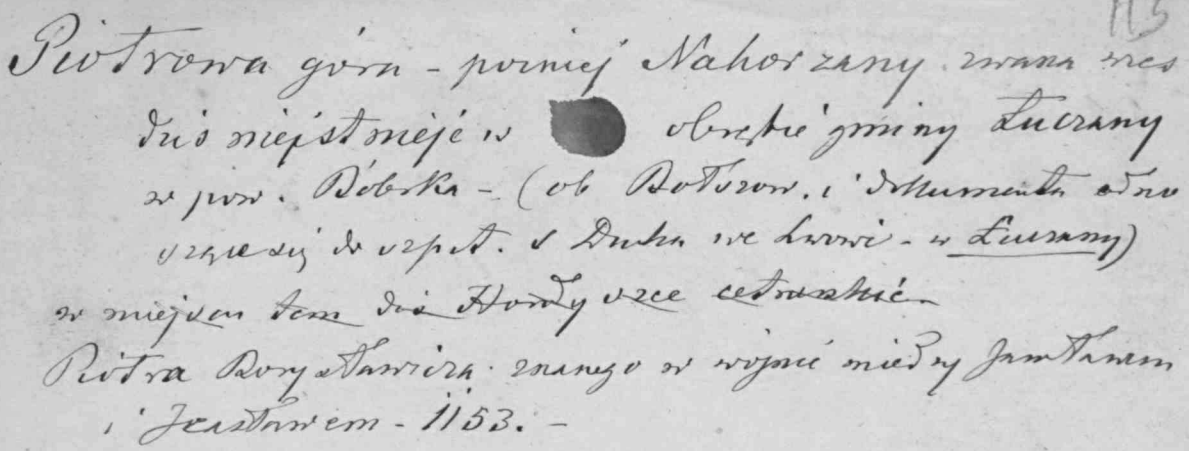 115
Piotrowa góra - poźniej Nahorzany zwana wieś
dziś niejstnieje w obrębie gminy Łuczany
w pow. Bóbrka - (ob Bołszow. i dokumenta odno
szące się do szpit. S Ducha we Lwowie - w Łuczany)
w miejscu tem dziś Hordy
Piotra Borysławicza znanego w wojnie między
i Izasławem - 1153. -